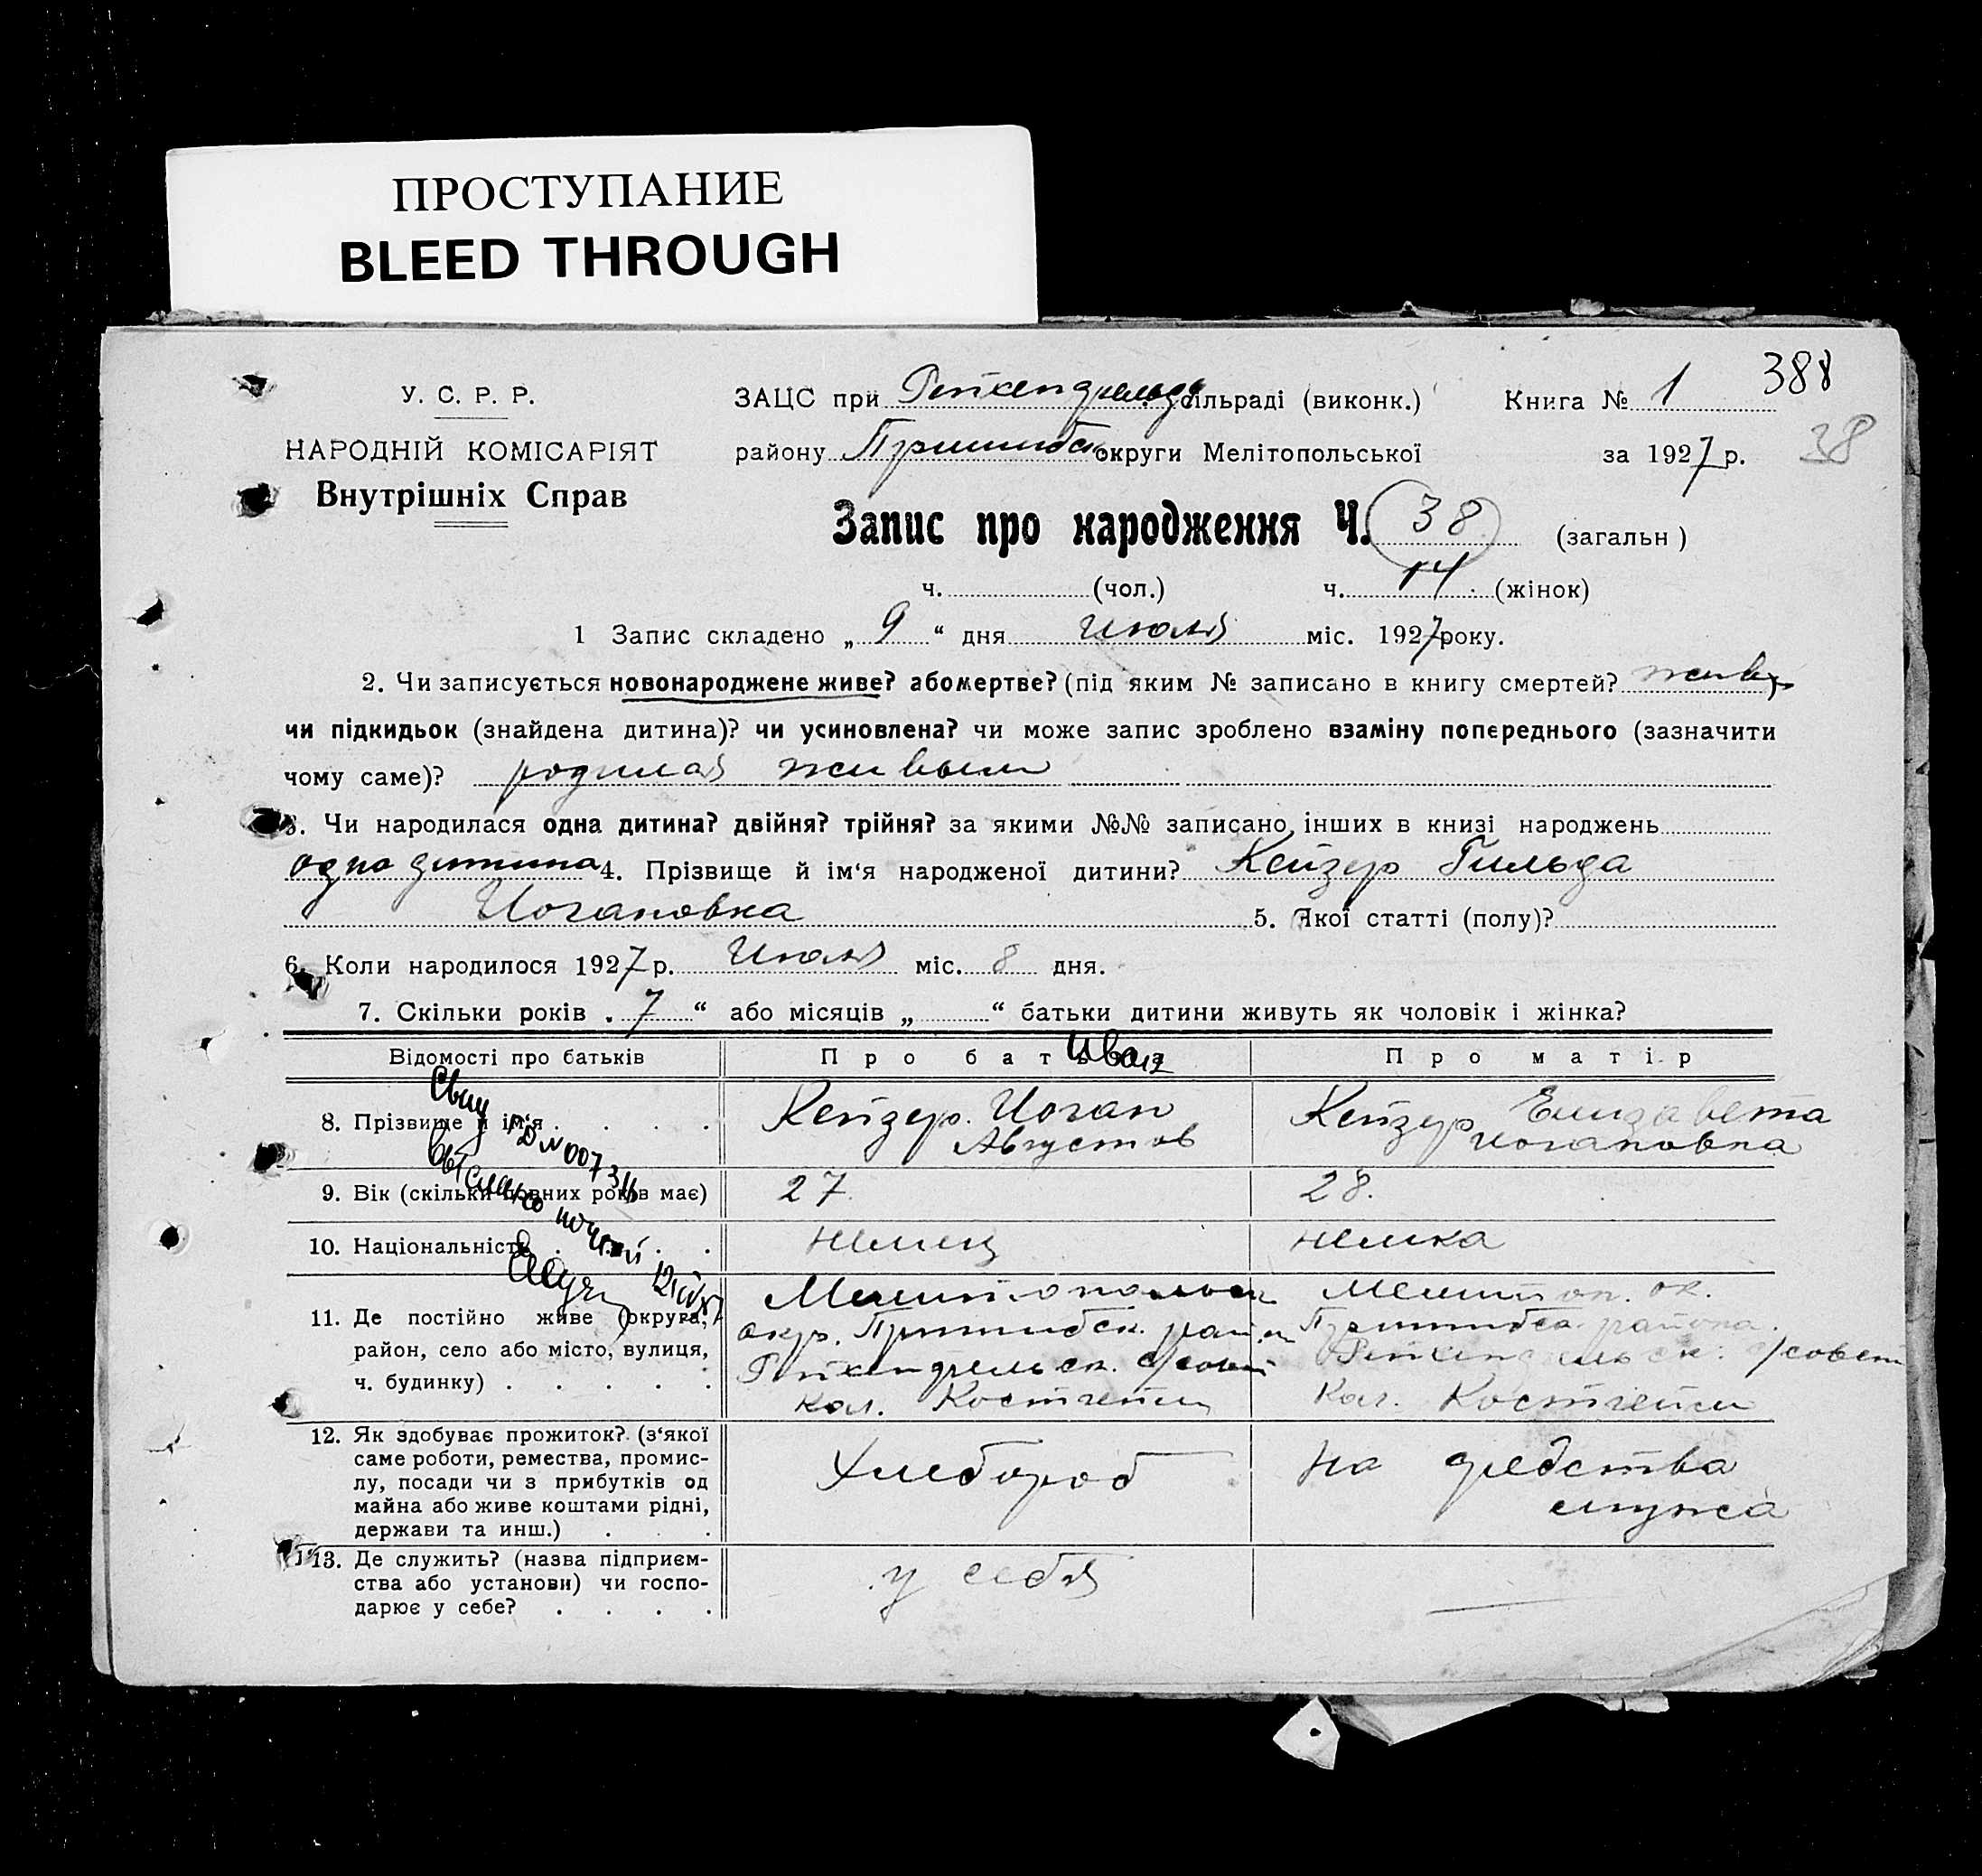 ПРОСТУПАНИЕ
BLEED THROUGH
388
У. С. Р. Р.
ЗАЦС при Рейхенфельд сільраді (виконк.) Книга № 1
НАРОДНІЙ КОМІСАРІЯТ
району Пришибск округи Мелітопольської за 1927 р. 38
Внутрішніх Справ
Запис про народження Ч. 38 (загальн)
ч. (чол.) ч. 14 (жінок)
1 Запис складено „ 9 “ дня Июля міс. 1927 року.
2. Чи записується новонароджене живе? або мертве? (під яким № записано в книгу смертей?
чи підкидьок (знайдена дитина)? чи усиновлена? чи може запис зроблено взаміну попереднього (зазначити
чому саме)? родилая живым
3. Чи народилася одна дитина? двійня? трійня? за якими №№ записано інших в книзі народжень
одна дитина 4. Прізвище й ім‘я народженої дитини? Кейзер Гильда
Иогановна 5. Якої статті (полу)?
6. Коли народилося 1927 р. Июля міс. 8 дня.
7. Скільки років „ 7 “ або місяців „ “ батьки дитини живуть як чоловік і жінка?
Відомості про батьків Про батька Про матір
Иван
8. Прізвище й ім‘я Кейзер. Иоган Августов Кейзер Елизавета Иогановна
9. Вік (скільки повних років має) 27. 28.
10. Національність немец немка
11. Де постійно живе (округа, район, село або місто, вулиця, ч. будинку)
Мелитопольск окр. Пришибск. район Рейхенфельск. с/совет кол. Костгейм
Мелитоп. ок. Пришибск. района. Рейхенфельск. с/совет Кол. Костгейм
12. Як здобуває прожиток? (з‘якої
саме роботи, ремества, промис-
лу, посади чи з прибутків од
майна або живе коштами рідні,
держави та инш.)
Хлебороб На средства мужа
13. Де служить? (назва підприєм-
ства або установи) чи госпо-
дарює у себе?
у себя